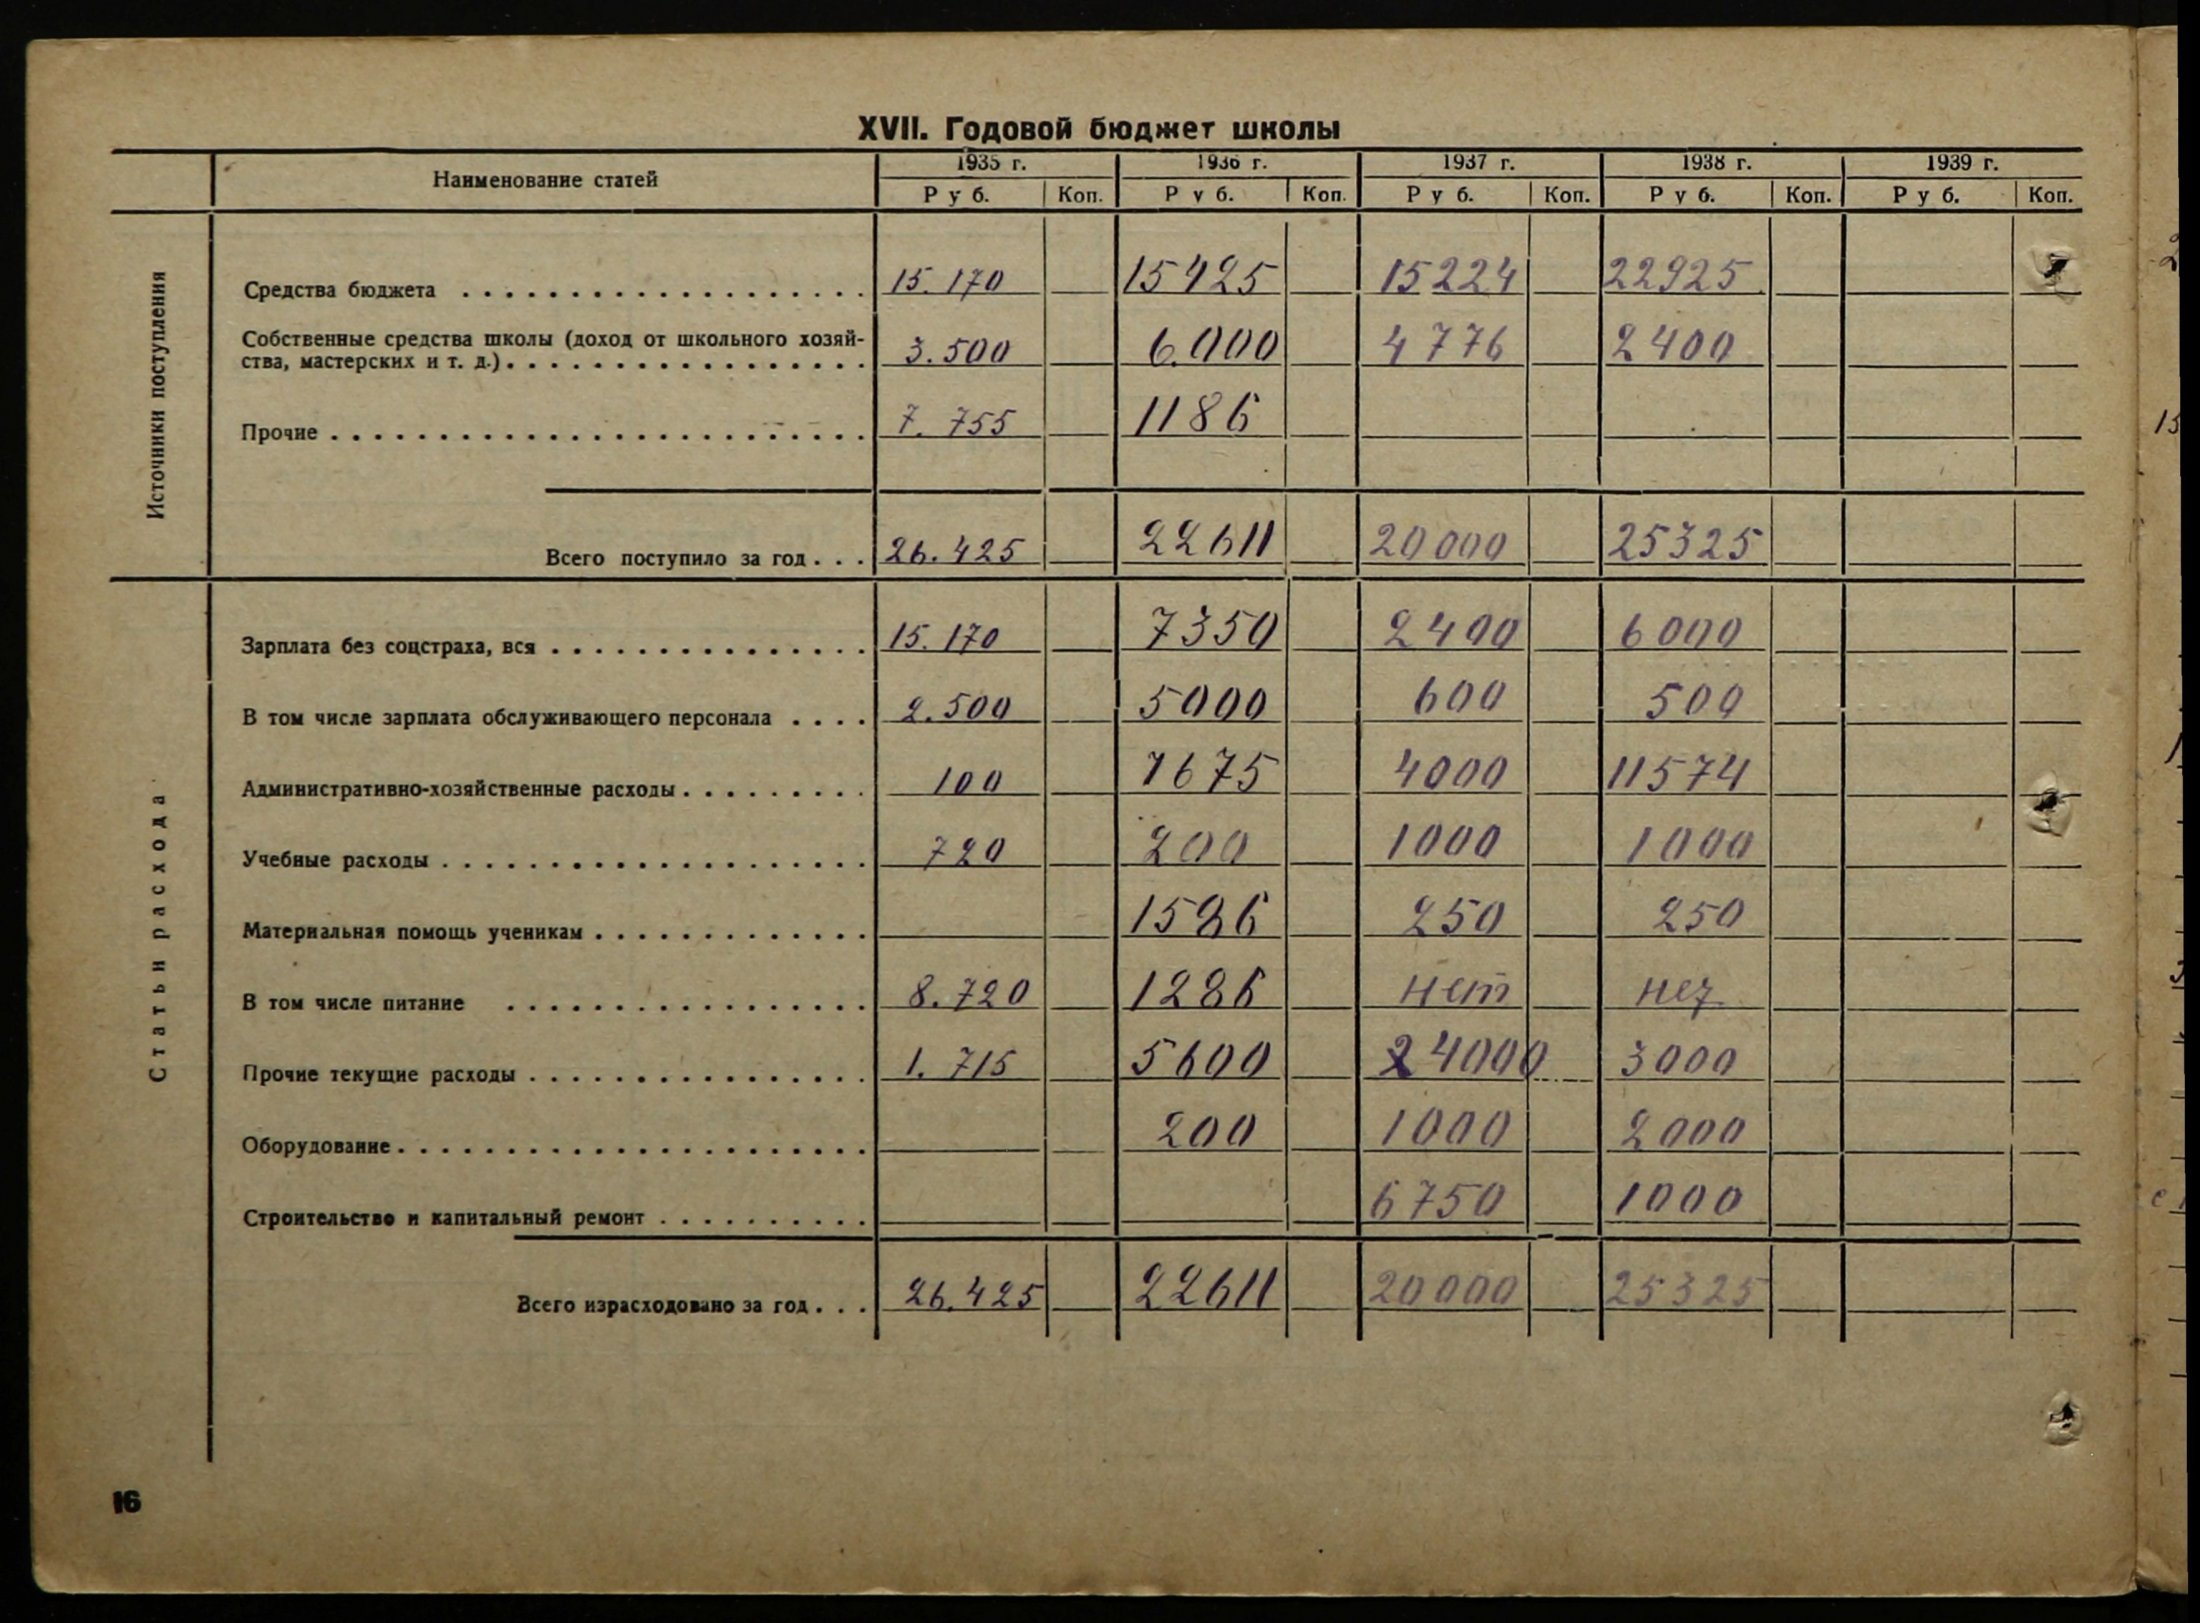 XVII. Годовой бюджет школы
Наименование статей 1935 г. 1936 г. 1937 г. 1938 г. 1939 г.
Руб. Коп. Руб. Коп. Руб. Коп. Руб. Коп. Руб. Коп.
Источники поступления
Средства бюджета . . . . . . . . . . . . . . . . . . . 15.170 15425 15224 22925
Собственные средства школы (доход от школьного хозяй-
ства, мастерских и т. д.) . . . . . . . . . . . . . 3.500 6.000 4776 2400
Прочие . . . . . . . . . . . . . . . . . . . . . . . . . 7.755 1186
Всего поступило за год . . . 26.425 22611 20000 25325
Статьи расхода
Зарплата без соцстраха, вся . . . . . . . . . . . . . . . 15.170 7350 2400 6000
В том числе зарплата обслуживающего персонала . . . . 2.500 5000 600 500
Административно-хозяйственные расходы . . . . . . . . . 100 7675 4000 11574
Учебные расходы . . . . . . . . . . . . . . . . . . . . 720 200 1000 1000
Материальная помощь ученикам . . . . . . . . . . . . . 1586 250 250
В том числе питание . . . . . . . . . . . . . . . . . 8.720 1286 нет нет
Прочие текущие расходы . . . . . . . . . . . . . . . . 1.715 5600 24000 3000
Оборудование . . . . . . . . . . . . . . . . . . . . . . 200 1000 2000
Строительство и капитальный ремонт . . . . . . . . . . 6750 1000
Всего израсходовано за год . . . 26.425 22611 20000 25325
16